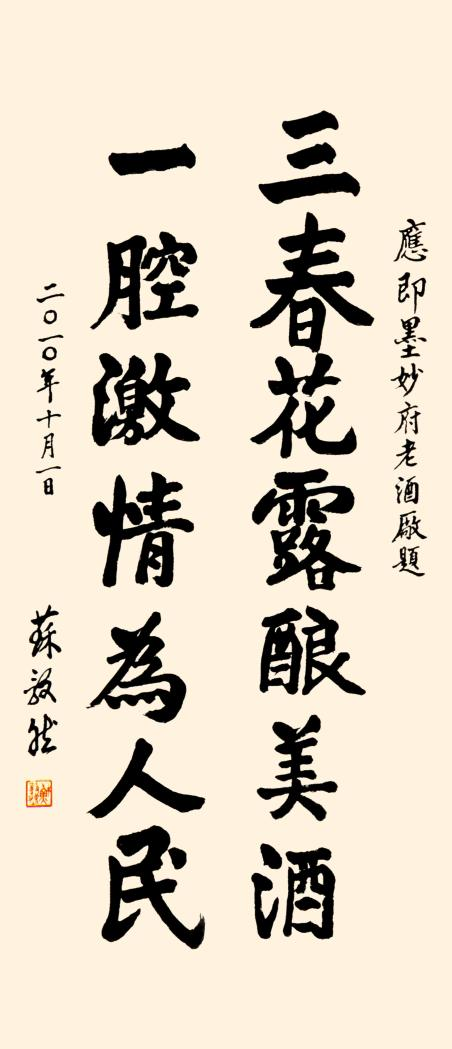 應即墨妙府老酒廠題
三春花露酿美酒
一腔激情為人民
二〇一〇年十月一日